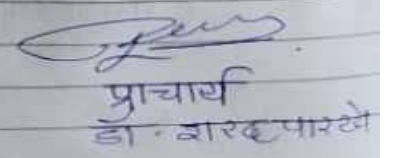 प्राचार्य
डा. शरद पारखे